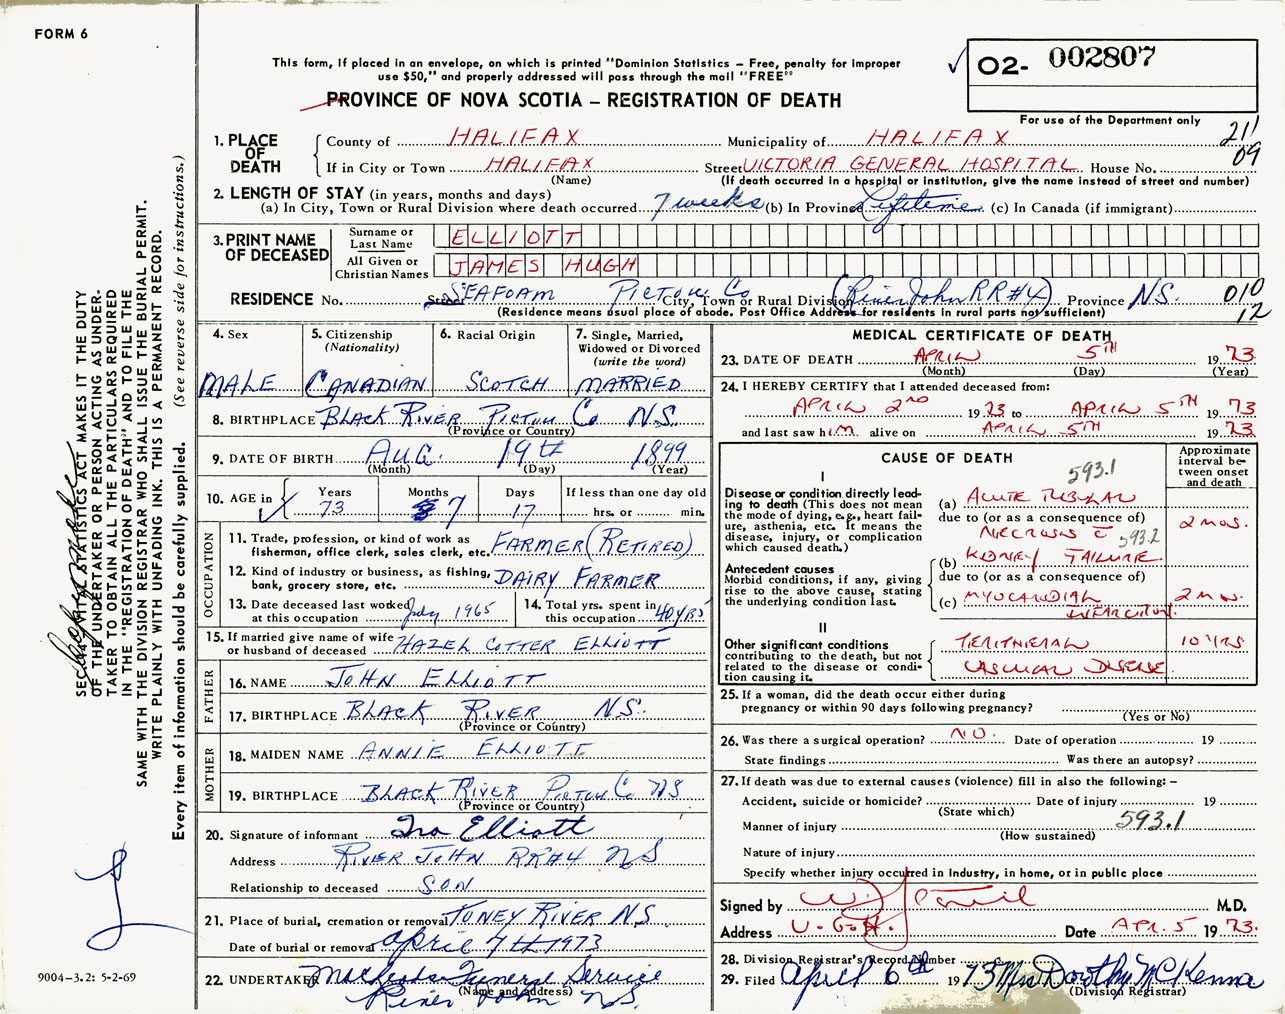 FORM 6
This form, if placed in an envelope, on which is printed "Dominion Statistics – Free, penalty for improper
use $50," and properly addressed will pass through the mail "FREE"
PROVINCE OF NOVA SCOTIA – REGISTRATION OF DEATH
02- 002807
For use of the Department only
211
09
1. PLACE OF DEATH
County of HALIFAX Municipality of HALIFAX
If in City or Town HALIFAX Street VICTORIA GENERAL HOSPITAL House No.
(Name) (If death occurred in a hospital or institution, give the name instead of street and number)
2. LENGTH OF STAY (in years, months and days)
(a) In City, Town or Rural Division where death occurred 7 weeks (b) In Province Lifetime (c) In Canada (if immigrant)
3. PRINT NAME OF DECEASED
Surname or Last Name ELLIOTT
All Given or Christian Names JAMES HUGH
RESIDENCE No. Street SEAFOAM PICTOU Co City, Town or Rural Division (River John RR#4) Province N.S. 010
12
(Residence means usual place of abode. Post Office Address for residents in rural parts not sufficient)
4. Sex
MALE
5. Citizenship
(Nationality)
CANADIAN
6. Racial Origin
SCOTCH
7. Single, Married,
Widowed or Divorced
(write the word)
MARRIED
8. BIRTHPLACE BLACK RIVER PICTOU Co N.S.
(Province or Country)
9. DATE OF BIRTH AUG. 19th 1899
(Month) (Day) (Year)
10. AGE in
Years
73
Months
7
Days
17
If less than one day old
hrs. or min.
OCCUPATION
11. Trade, profession, or kind of work as
fisherman, office clerk, sales clerk, etc. FARMER (RETIRED)
12. Kind of industry or business, as fishing,
bank, grocery store, etc. DAIRY FARMER
13. Date deceased last worked
at this occupation July 1965
14. Total yrs. spent in
this occupation 40 YRS
15. If married give name of wife
or husband of deceased HAZEL COTTER ELLIOTT
FATHER
16. NAME JOHN ELLIOTT
17. BIRTHPLACE BLACK RIVER N.S.
(Province or Country)
MOTHER
18. MAIDEN NAME ANNIE ELLIOTT
19. BIRTHPLACE BLACK RIVER PICTOU Co NS
(Province or Country)
20. Signature of informant Ira Elliott
Address RIVER JOHN RR#4 NS
Relationship to deceased SON
21. Place of burial, cremation or removal TONEY RIVER N.S.
Date of burial or removal April 7th 1973
22. UNDERTAKER Funeral Service
(Name and address)
River John N.S.
MEDICAL CERTIFICATE OF DEATH
23. DATE OF DEATH APRIL 5TH 1973
(Month) (Day) (Year)
24. I HEREBY CERTIFY that I attended deceased from:
APRIL 2ND 1973 to APRIL 5TH 1973
and last saw him alive on APRIL 5TH 1973
CAUSE OF DEATH
593.1
Approximate
interval be-
tween onset
and death
I
Disease or condition directly lead-
ing to death (This does not
mean the mode of dying, e.g., heart fail-
ure, asthenia, etc. It means the
disease, injury, or complication
which caused death.)
(a) ACUTE TUBULAR
due to (or as a consequence of)
NECROSIS c̄ 593.2
2 mos.
Antecedent causes
Morbid conditions, if any, giving
rise to the above cause, stating
the underlying condition last.
(b) KIDNEY FAILURE
due to (or as a consequence of)
(c) MYOCARDIAL
INFARCTION
2 mos.
II
Other significant conditions
contributing to the death, but not
related to the disease or condi-
tion causing it.
VASCULAR DISEASE
10 YRS
25. If a woman, did the death occur either during
pregnancy or within 90 days following pregnancy?
(Yes or No)
26. Was there a surgical operation? NO. Date of operation 19
State findings Was there an autopsy?
27. If death was due to external causes (violence) fill in also the following: –
Accident, suicide or homicide? Date of injury 19
(State which)
Manner of injury 593.1
(How sustained)
Nature of injury
Specify whether injury occurred in industry, in home, or in public place
Signed by M.D.
Address V.G.H. Date APR. 5 1973.
28. Division Registrar's Record Number
29. Filed April 6th 1973 Mrs Dorothy McKenna
(Division Registrar)
SECTION STATISTICS ACT MAKES IT THE DUTY
OF THE UNDERTAKER OR PERSON ACTING AS UNDER-
TAKER TO OBTAIN ALL THE PARTICULARS REQUIRED
IN THE "REGISTRATION OF DEATH" AND TO FILE THE
SAME WITH THE DIVISION REGISTRAR WHO SHALL ISSUE THE BURIAL PERMIT.
WRITE PLAINLY WITH UNFADING INK. THIS IS A PERMANENT RECORD.
Every item of information should be carefully supplied. (See reverse side for instructions.)
9004-3.2: 5-2-69